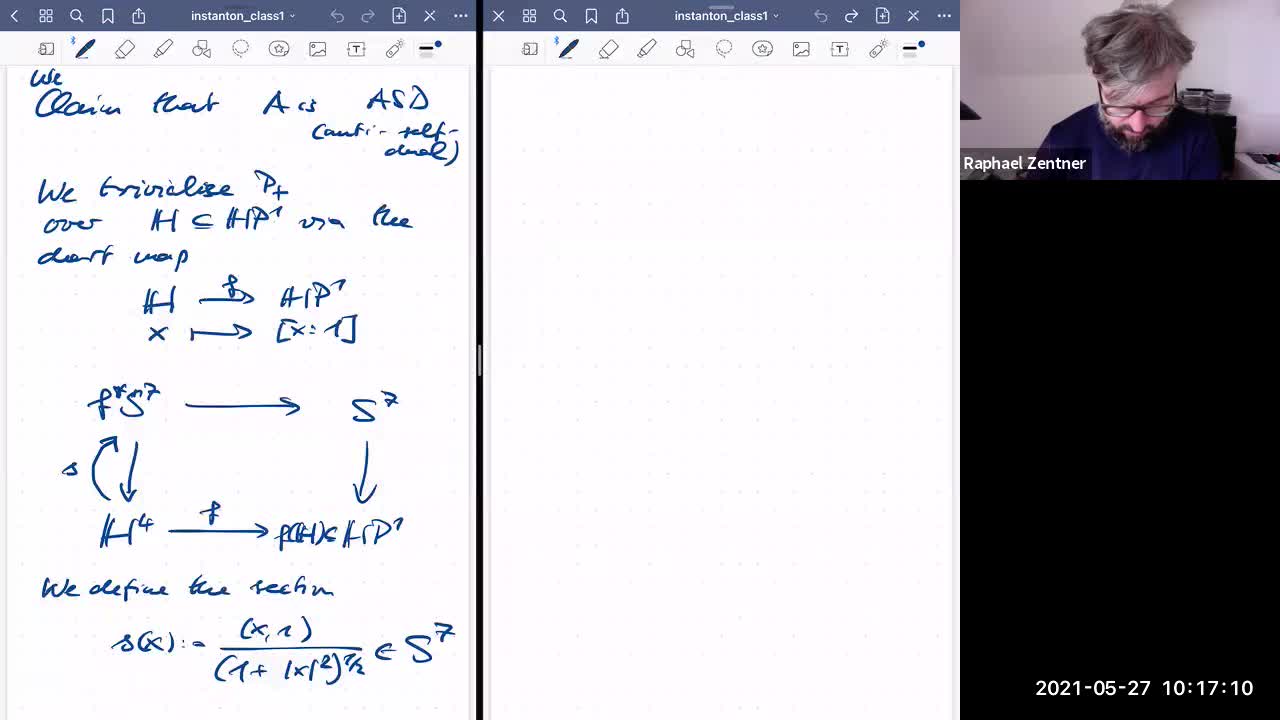 instanton_class1
instanton_class1
We
Claim that A is ASD
(anti-self-
dual)
We trivialise P₊
over ℍ ⊆ ℍP¹ via the
chart map
ℍ →f ℍP¹
x ↦ [x:1]
f*S⁷ → S⁷
s
ℍ⁴ →f f(ℍ)⊆ℍP¹
We define the section
s(x) := (x,1) / (1+|x|²)^{1/2} ∈ S⁷
Raphael Zentner
2021-05-27 10:17:10